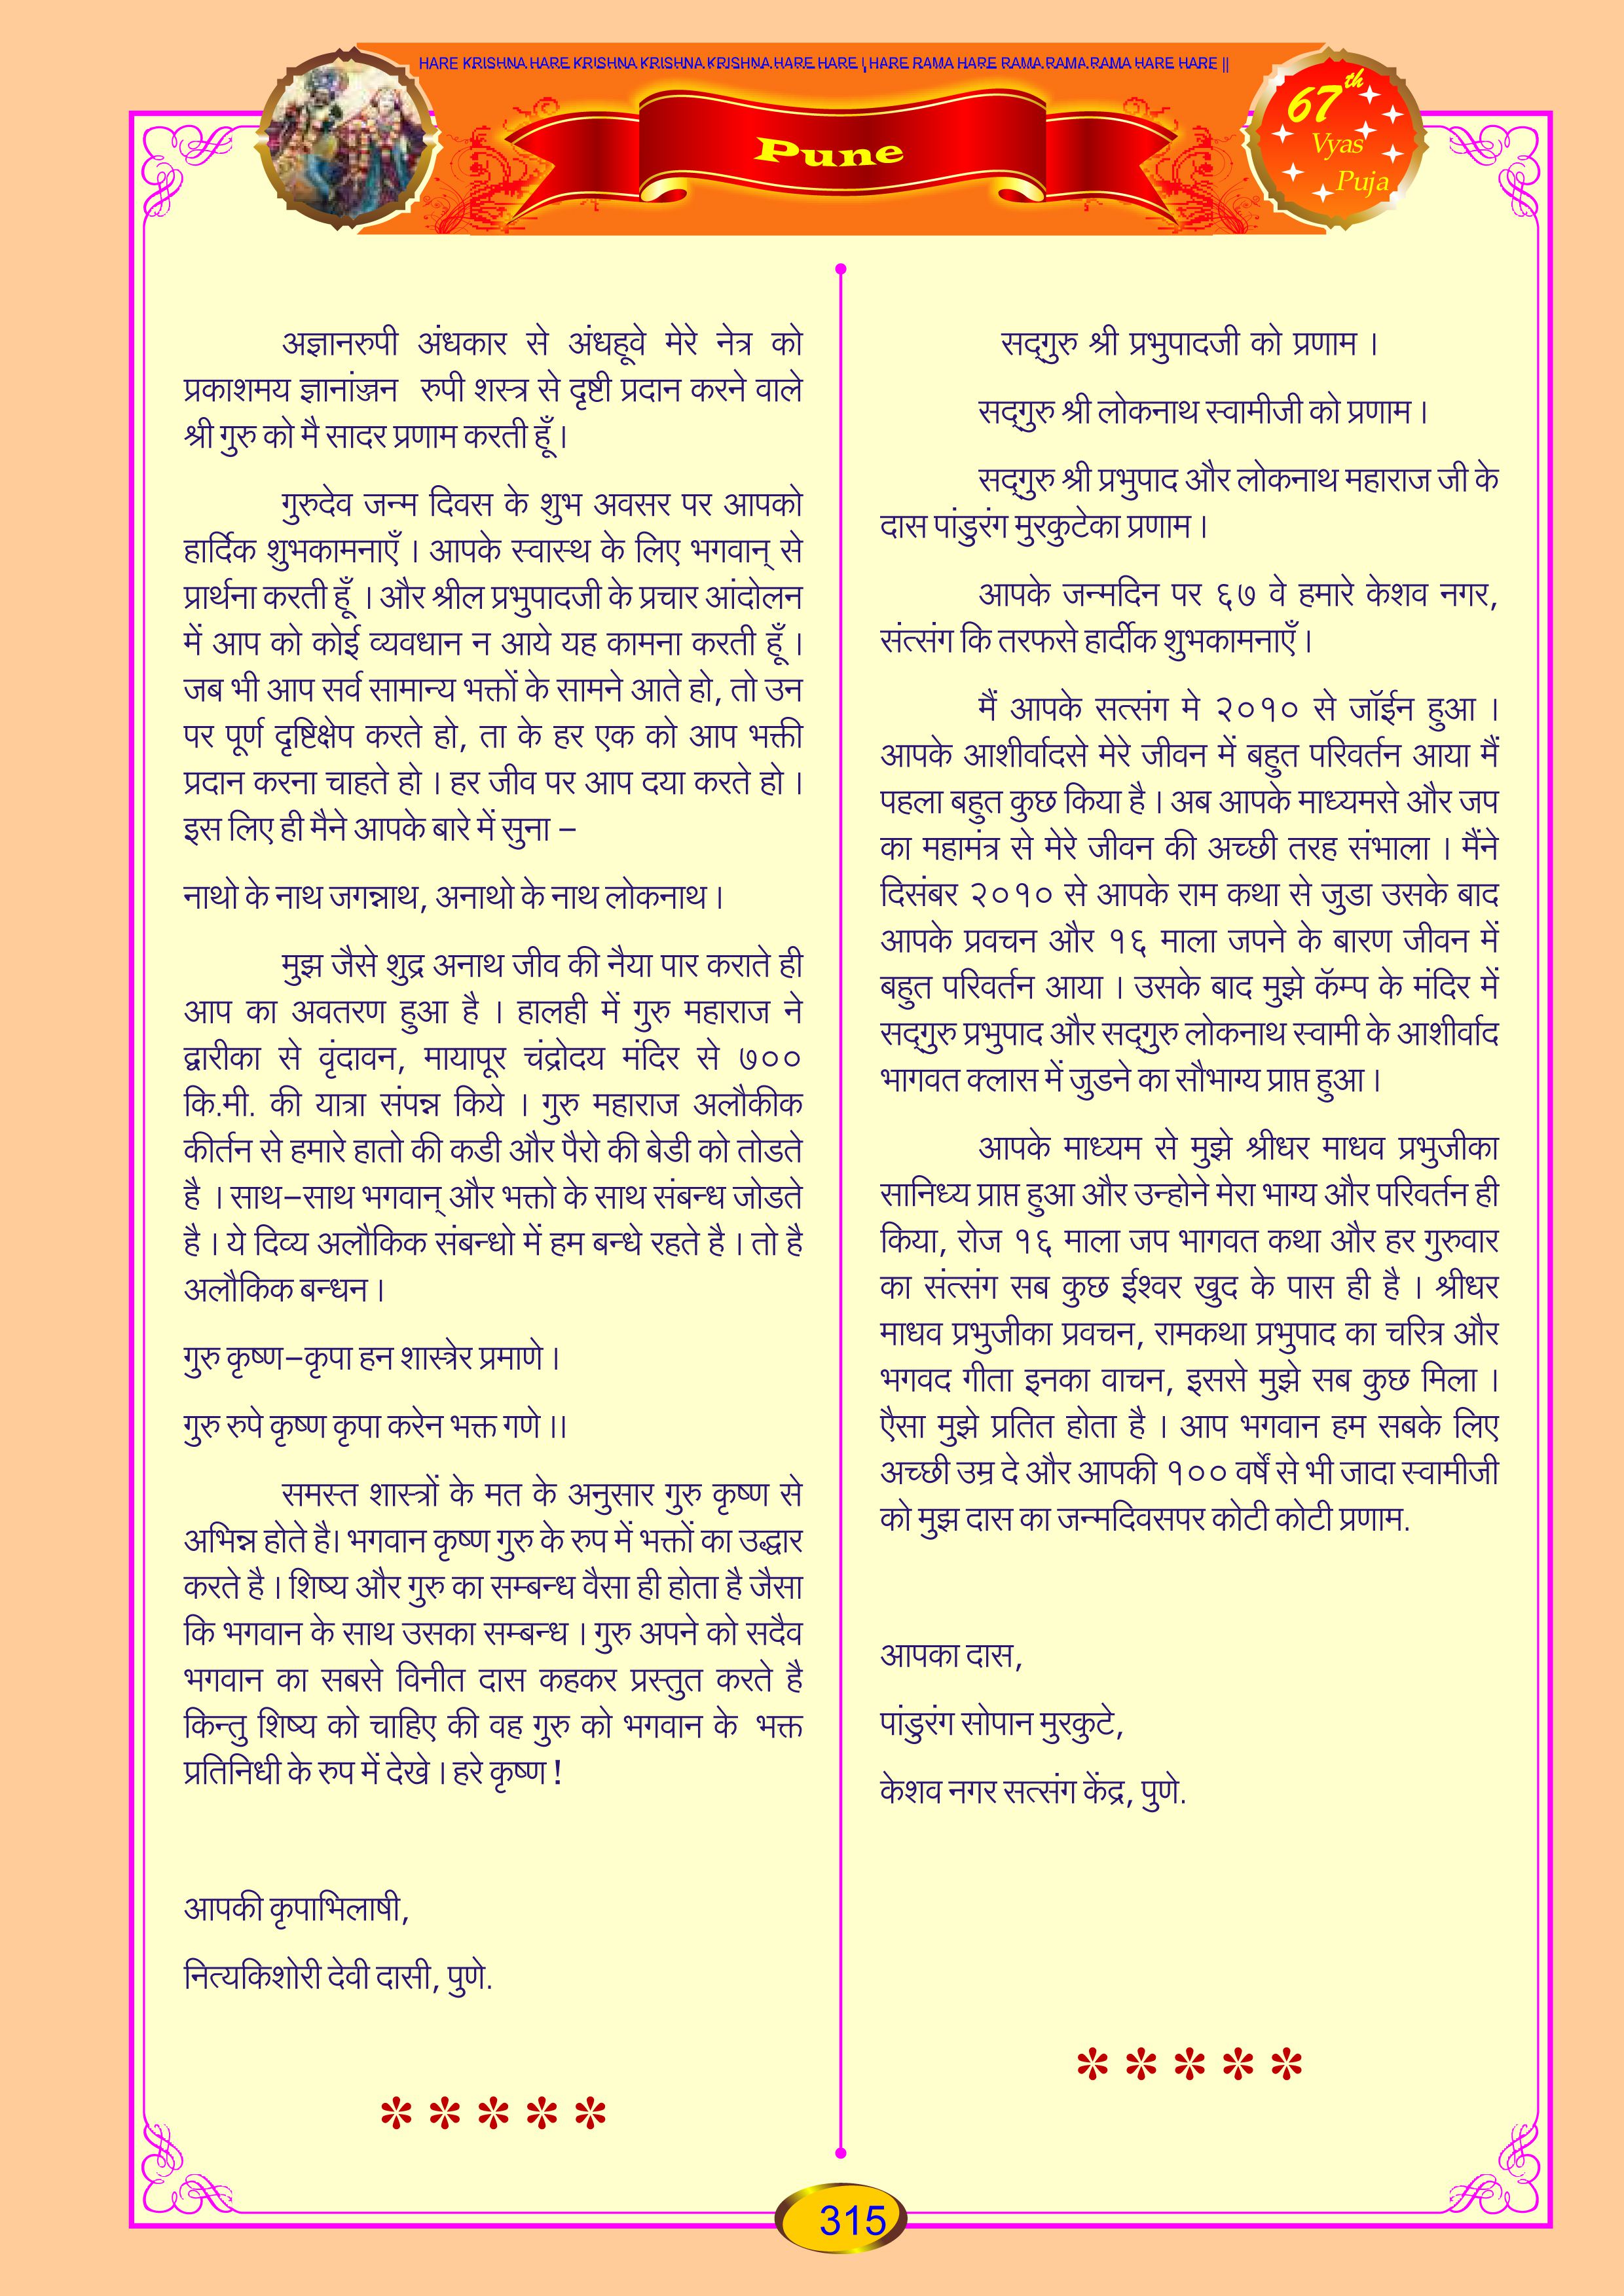 HARE KRISHNA HARE KRISHNA KRISHNA KRISHNA HARE HARE | HARE RAMA HARE RAMA RAMA RAMA HARE HARE ||
Pune
67th
Vyas
Puja
अज्ञानरुपी अंधकार से अंधहूवे मेरे नेत्र को
प्रकाशमय ज्ञानांज्जन रुपी शस्त्र से दृष्टी प्रदान करने वाले
श्री गुरु को मै सादर प्रणाम करती हूँ ।
गुरुदेव जन्म दिवस के शुभ अवसर पर आपको
हार्दिक शुभकामनाएँ । आपके स्वास्थ के लिए भगवान् से
प्रार्थना करती हूँ । और श्रील प्रभुपादजी के प्रचार आंदोलन
में आप को कोई व्यवधान न आये यह कामना करती हूँ ।
जब भी आप सर्व सामान्य भक्तों के सामने आते हो, तो उन
पर पूर्ण दृष्टिक्षेप करते हो, ता के हर एक को आप भक्ती
प्रदान करना चाहते हो । हर जीव पर आप दया करते हो ।
इस लिए ही मैने आपके बारे में सुना –
नाथो के नाथ जगन्नाथ, अनाथो के नाथ लोकनाथ ।
मुझ जैसे शुद्र अनाथ जीव की नैया पार कराते ही
आप का अवतरण हुआ है । हालही में गुरु महाराज ने
द्वारीका से वृंदावन, मायापूर चंद्रोदय मंदिर से ७००
कि.मी. की यात्रा संपन्न किये । गुरु महाराज अलौकीक
कीर्तन से हमारे हातो की कडी और पैरो की बेडी को तोडते
है । साथ–साथ भगवान् और भक्तो के साथ संबन्ध जोडते
है । ये दिव्य अलौकिक संबन्धो में हम बन्धे रहते है । तो है
अलौकिक बन्धन ।
गुरु कृष्ण–कृपा हन शास्त्रेर प्रमाणे ।
गुरु रुपे कृष्ण कृपा करेन भक्त गणे ।।
समस्त शास्त्रों के मत के अनुसार गुरु कृष्ण से
अभिन्न होते है। भगवान कृष्ण गुरु के रुप में भक्तों का उद्धार
करते है । शिष्य और गुरु का सम्बन्ध वैसा ही होता है जैसा
कि भगवान के साथ उसका सम्बन्ध । गुरु अपने को सदैव
भगवान का सबसे विनीत दास कहकर प्रस्तुत करते है
किन्तु शिष्य को चाहिए की वह गुरु को भगवान के भक्त
प्रतिनिधी के रुप में देखे । हरे कृष्ण !
आपकी कृपाभिलाषी,
नित्यकिशोरी देवी दासी, पुणे.
* * * * *
सद्‌गुरु श्री प्रभुपादजी को प्रणाम ।
सद्‌गुरु श्री लोकनाथ स्वामीजी को प्रणाम ।
सद्‌गुरु श्री प्रभुपाद और लोकनाथ महाराज जी के
दास पांडुरंग मुरकुटेका प्रणाम ।
आपके जन्मदिन पर ६७ वे हमारे केशव नगर,
संत्संग कि तरफसे हार्दीक शुभकामनाएँ ।
मैं आपके सत्संग मे २०१० से जॉईन हुआ ।
आपके आशीर्वादसे मेरे जीवन में बहुत परिवर्तन आया मैं
पहला बहुत कुछ किया है । अब आपके माध्यमसे और जप
का महामंत्र से मेरे जीवन की अच्छी तरह संभाला । मैंने
दिसंबर २०१० से आपके राम कथा से जुडा उसके बाद
आपके प्रवचन और १६ माला जपने के बारण जीवन में
बहुत परिवर्तन आया । उसके बाद मुझे कॅम्प के मंदिर में
सद्‌गुरु प्रभुपाद और सद्‌गुरु लोकनाथ स्वामी के आशीर्वाद
भागवत क्लास में जुडने का सौभाग्य प्राप्त हुआ ।
आपके माध्यम से मुझे श्रीधर माधव प्रभुजीका
सानिध्य प्राप्त हुआ और उन्होने मेरा भाग्य और परिवर्तन ही
किया, रोज १६ माला जप भागवत कथा और हर गुरुवार
का संत्संग सब कुछ ईश्वर खुद के पास ही है । श्रीधर
माधव प्रभुजीका प्रवचन, रामकथा प्रभुपाद का चरित्र और
भगवद गीता इनका वाचन, इससे मुझे सब कुछ मिला ।
एैसा मुझे प्रतित होता है । आप भगवान हम सबके लिए
अच्छी उम्र दे और आपकी १०० वर्षें से भी जादा स्वामीजी
को मुझ दास का जन्मदिवसपर कोटी कोटी प्रणाम.
आपका दास,
पांडुरंग सोपान मुरकुटे,
केशव नगर सत्संग केंद्र, पुणे.
* * * * *
315